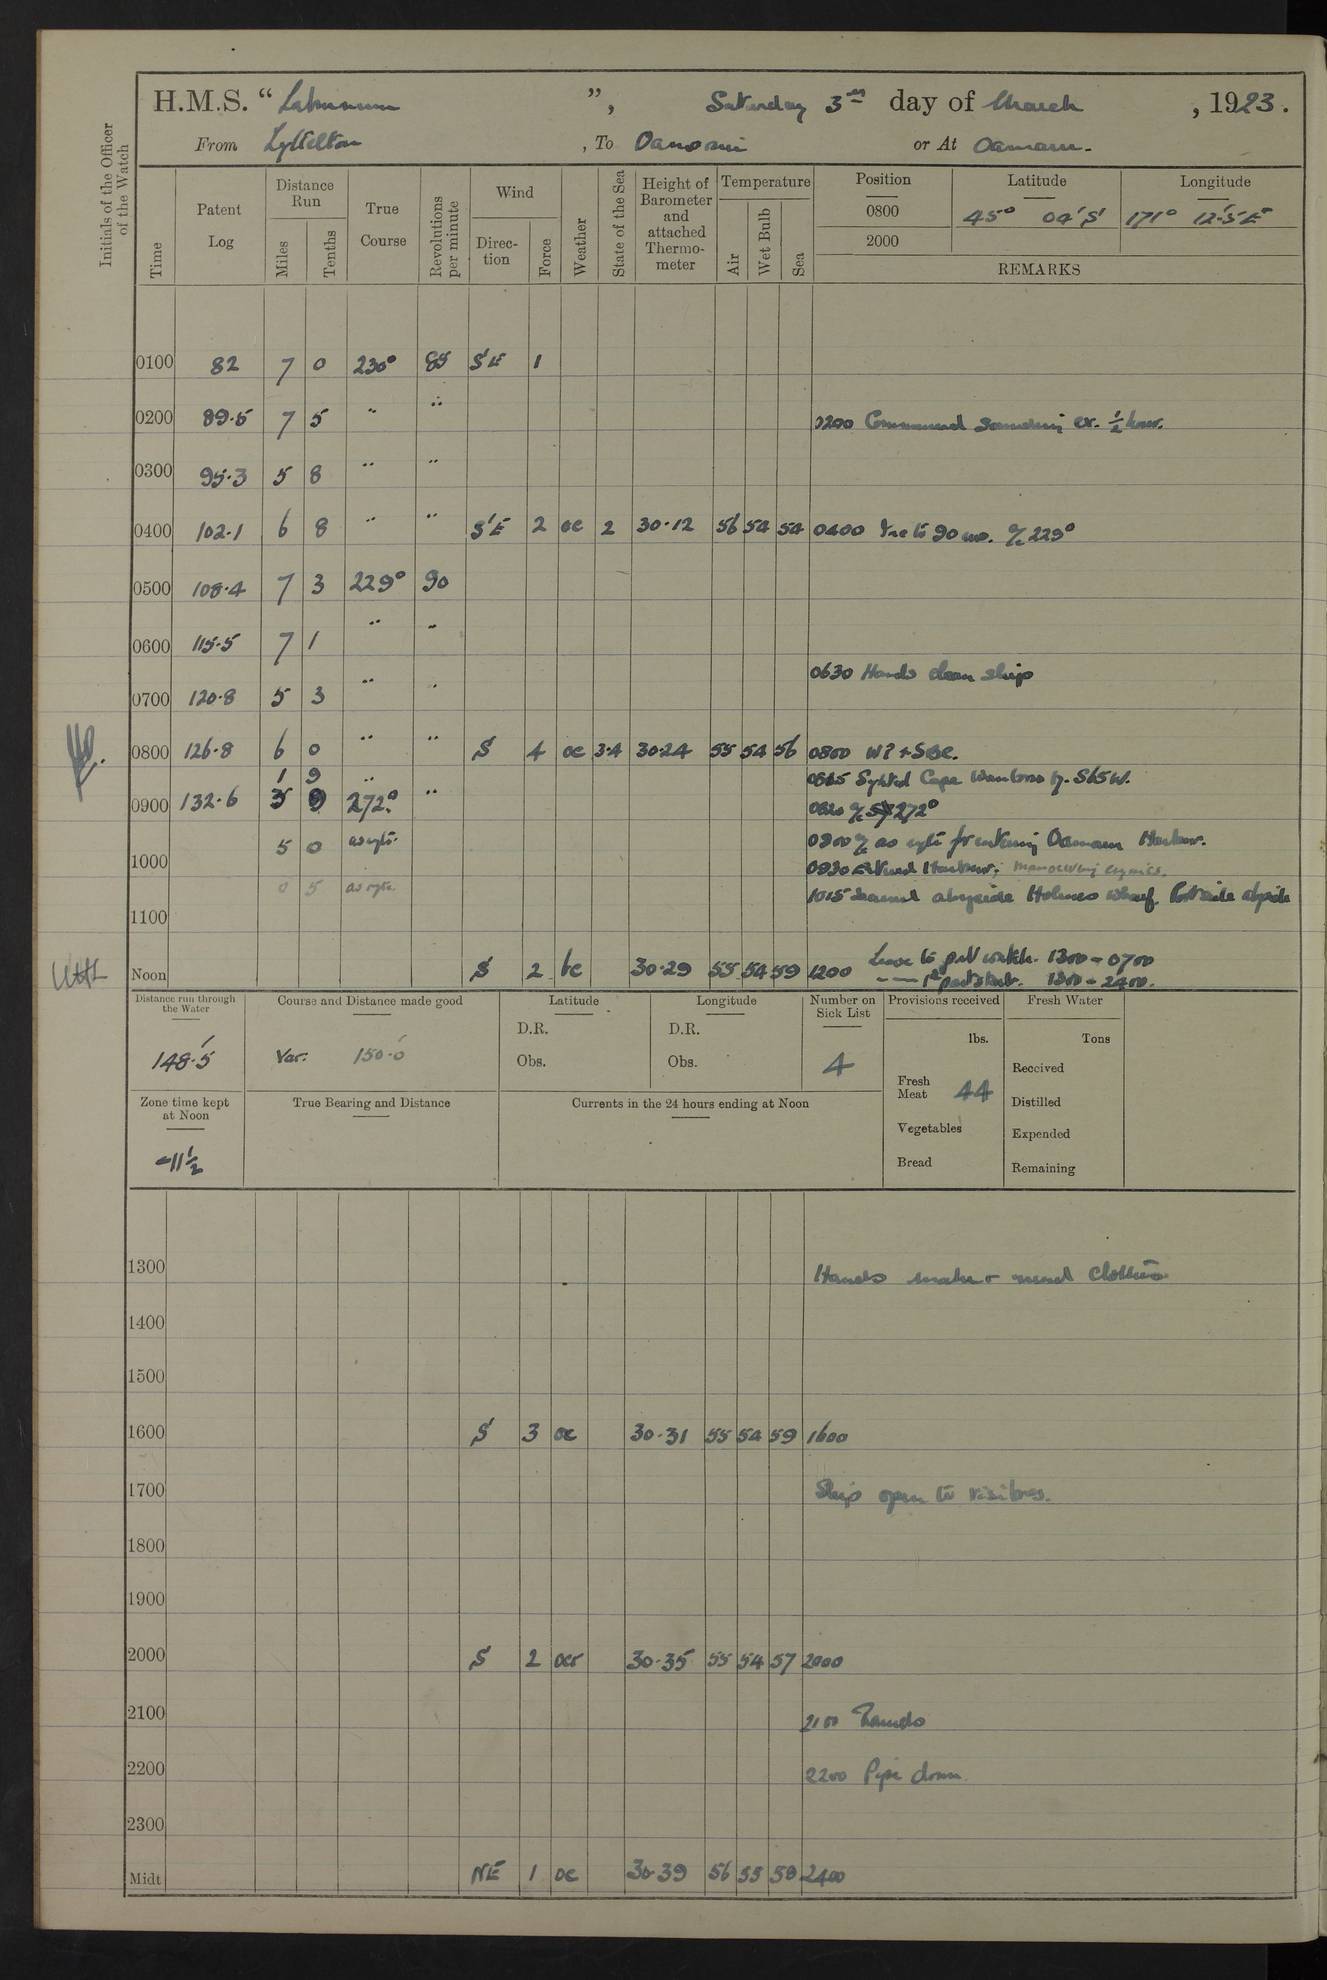 H.M.S. “ Laburnum ”, Saturday 3rd day of March , 1923.
From Lyttelton , To Oamaru or At Oamaru.
Initials of the Officer of the Watch
Time Patent Log Distance Run Miles Tenths True Course Revolutions per minute Wind Direction Force Weather State of the Sea Height of Barometer and attached Thermometer Temperature Air Wet Bulb Sea
Position Latitude Longitude
0800 45° 04' S 171° 12'.5 E
2000
REMARKS
0100 82 7 0 230° 85 S'E 1
0200 89.5 7 5 " " 0200 Commenced sounding ex. ½ hour.
0300 95.3 5 8 " "
0400 102.1 6 8 " " S'E 2 oc 2 30.12 56 54 54 0400 Inc to 90 revs. a/c 229°
0500 108.4 7 3 229° 90
0600 115.5 7 1 " "
0630 Hands clean ship
0700 120.8 5 3 " "
0800 126.8 6 0 " " S 4 oc 3.4 30.24 55 54 56 0800
1 9 " Sighted Cape S65W.
0900 132.6 3 9 272° " 0820 a/c 272°
5 0 as reqte. 0900 a/c as reqte for entering Oamaru Harbour.
1000 0930 Entered Harbour; manoeuvring engines.
0 5 as reqte. 1015 Secured alongside Holmes Wharf. Port side alongside
1100
Leave to part watch. 1300 - 0700
Noon S 2 bc 30.29 55 54 59 1200 1300 - 2400.
Distance run through the Water Course and Distance made good Latitude Longitude Number on Sick List Provisions received Fresh Water
D.R. D.R. lbs. Tons
148.5 Var. 150.0 Obs. Obs. 4 Received
Fresh Meat 44
Zone time kept at Noon True Bearing and Distance Currents in the 24 hours ending at Noon Distilled
Vegetables Expended
-11½ Bread Remaining
1300 Hands make & mend clothes
1400
1500
1600 S 3 oc 30.31 55 54 59 1600
1700 Ship open to visitors.
1800
1900
2000 S 2 ocr 30.35 55 54 57 2000
2100 2100 Rounds
2200 2200 Pipe down.
2300
Midt NE 1 oc 30.39 56 55 58 2400